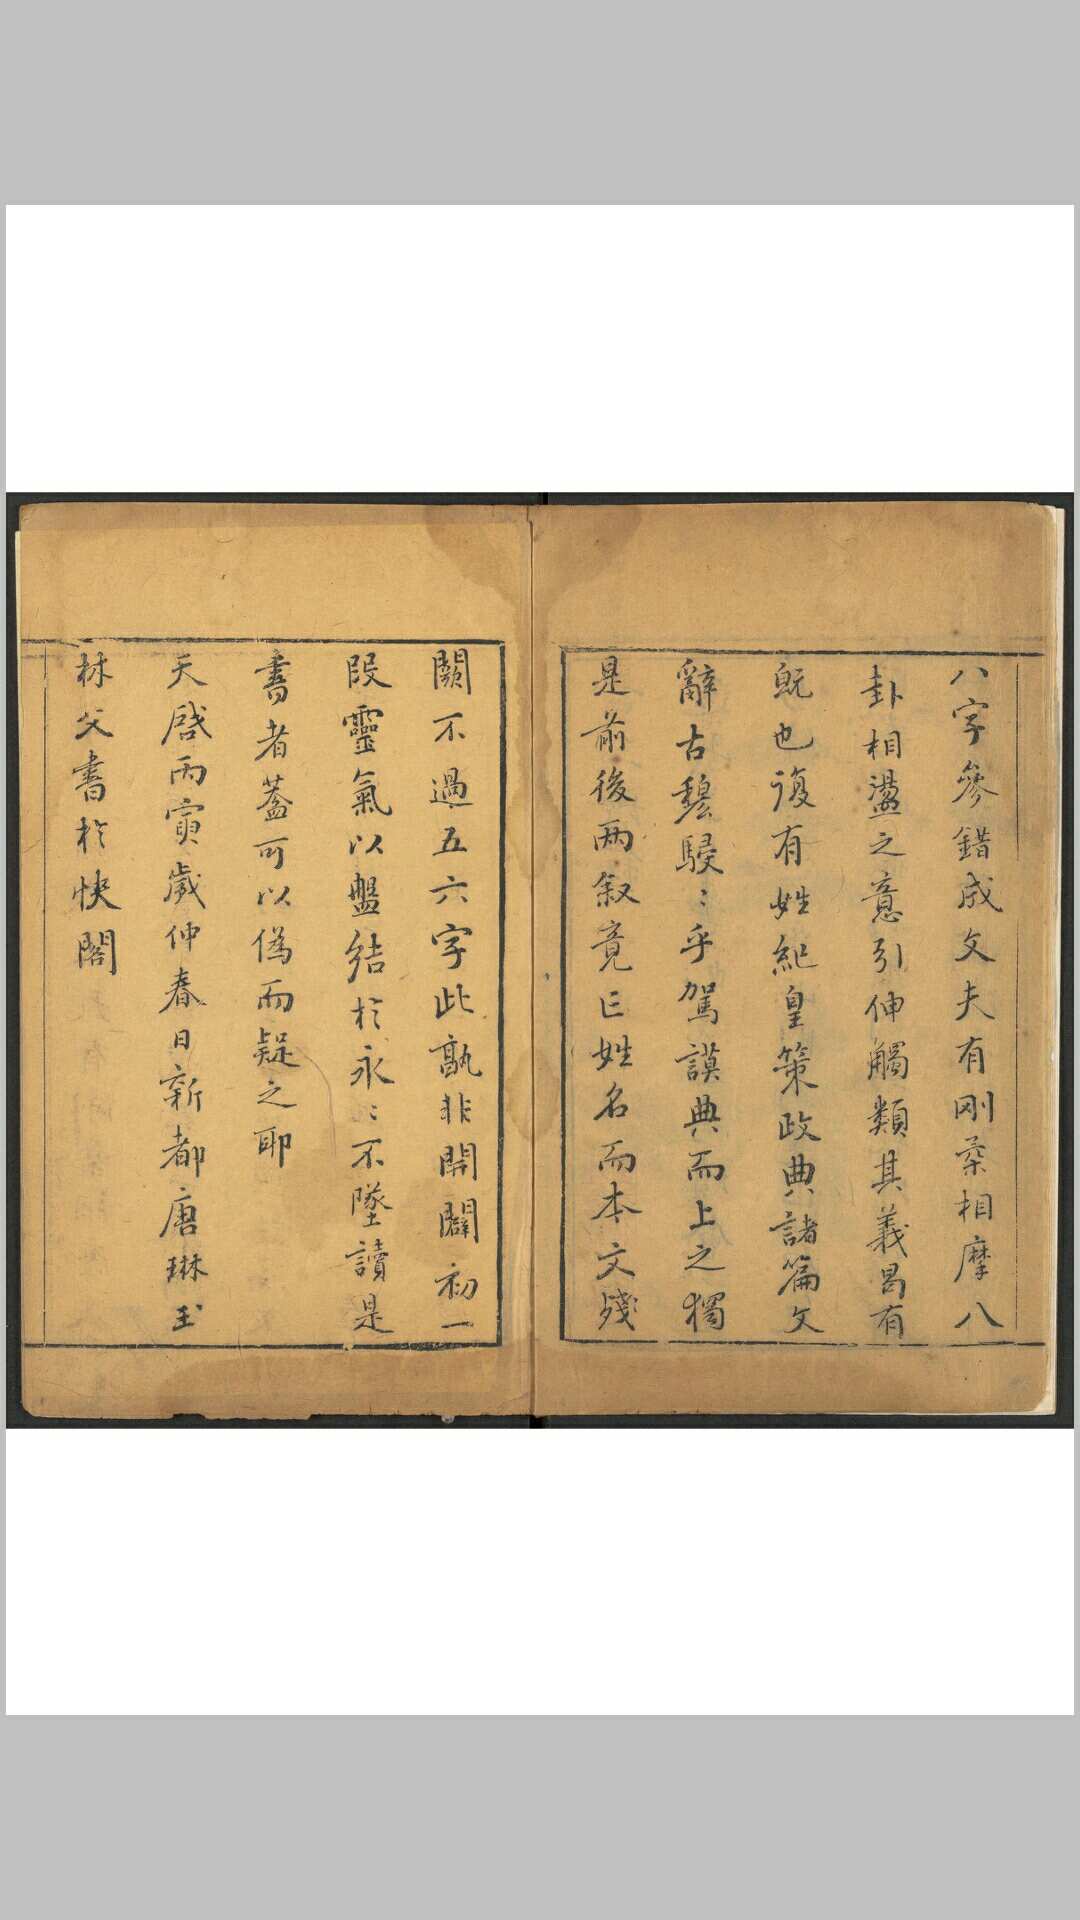 八字參錯成文夫有剛柔相摩八
卦相盪之意引伸觸類其義曷有
旣也復有姓紀皇策政典諸篇文
辭古穆駸〻乎駕謨典而上之獨
是前後兩叙竟亡姓名而本文殘
闕不過五六字此孰非開闢初一
段靈氣以盤結於永〻不墜讀是
書者葢可以僞而疑之耶
天啓丙寅歲仲春日新都唐琳玉
林父書於快閣